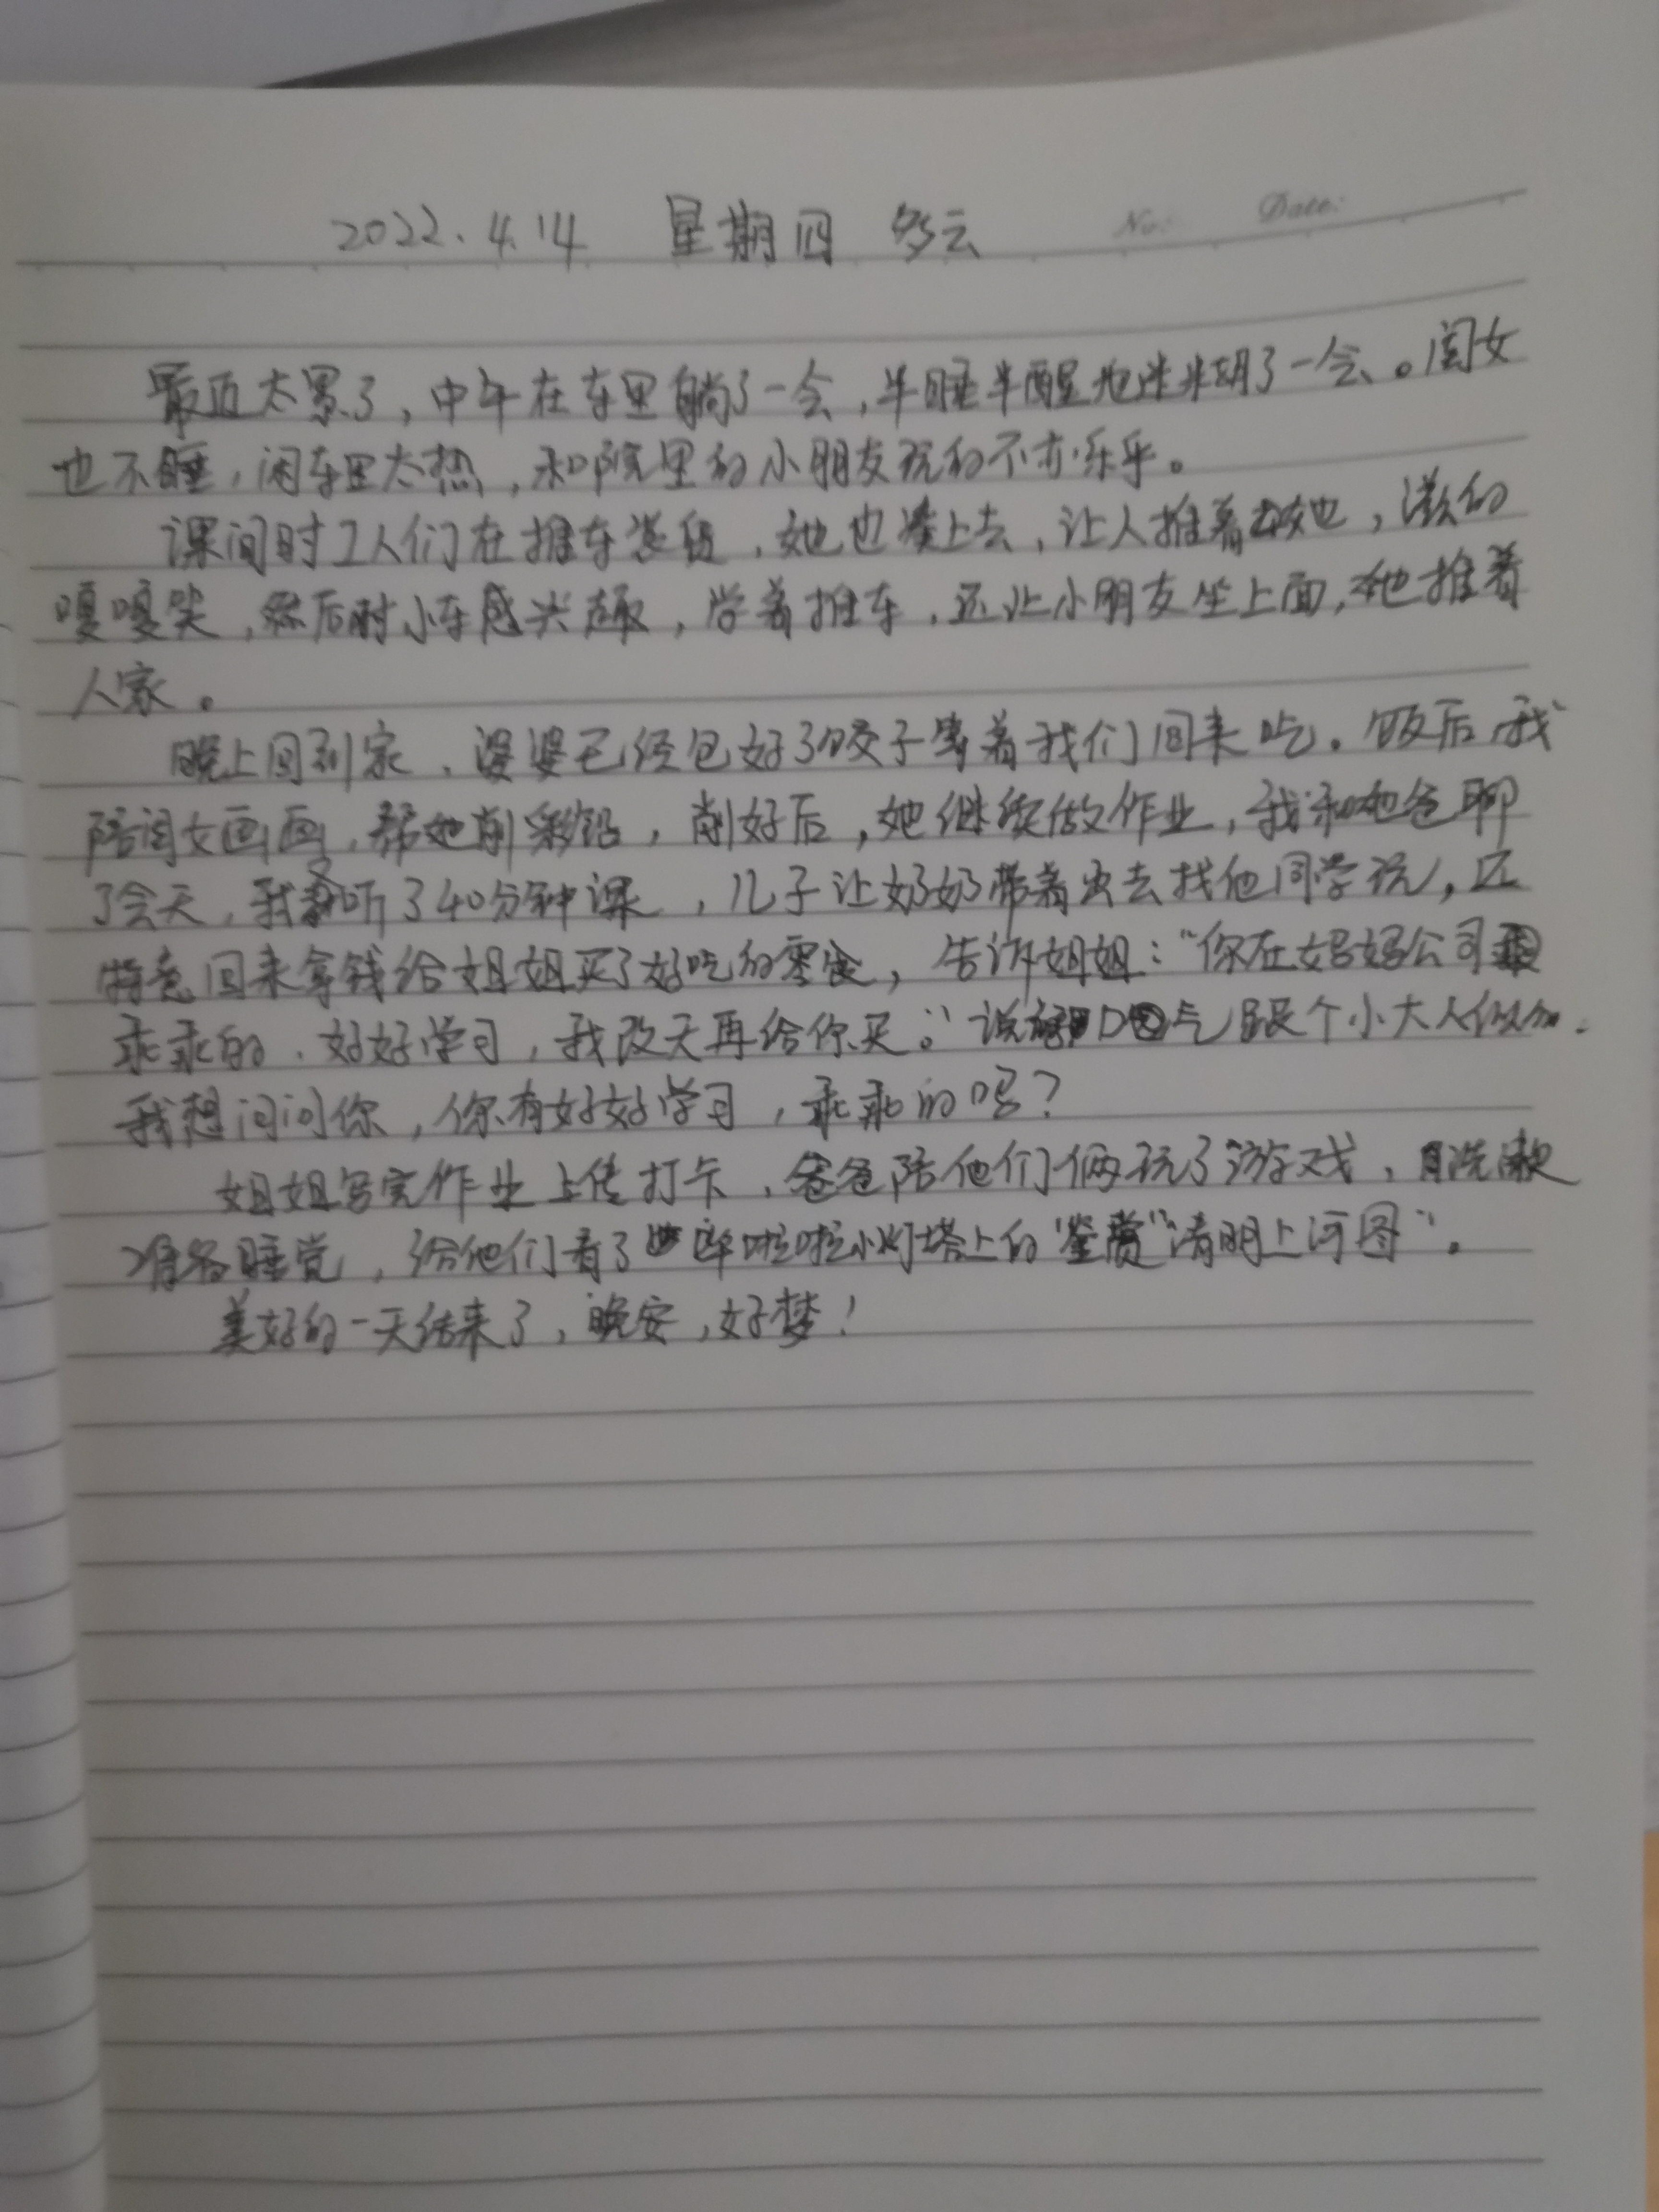 2022.4.14 星期四 多云
No: Date:
最近太累了,中午在车里躺了一会,半睡半醒地迷糊了一会。闺女
也不睡,闲车里太热,和院里的小朋友玩的不亦乐乎。
课间时工人们在推车装货,她也凑上去,让人推着她,激的
嘎嘎笑,然后对小车感兴趣,学着推车,还让小朋友坐上面,她推着
人家。
晚上回到家,婆婆已经包好了饺子等着我们回来吃。饭后我
陪闺女画画,帮她削彩铅,削好后,她继续做作业,我和她爸聊
了会天,我又听了40分钟课,儿子让奶奶带着出去找他同学玩,还
特意回来拿钱给姐姐买了好吃的零食,告诉姐姐:“你在妈妈公司
乖乖的,好好学习,我改天再给你买。”说话口气跟个小大人似的。
我想问问你,你有好好学习,乖乖的吗?
姐姐写完作业上传打卡,爸爸陪他们俩玩了游戏,洗漱
准备睡觉,给他们看了哗啦啦小灯塔上的“鉴赏“清明上河图”。
美好的一天结束了,晚安,好梦!